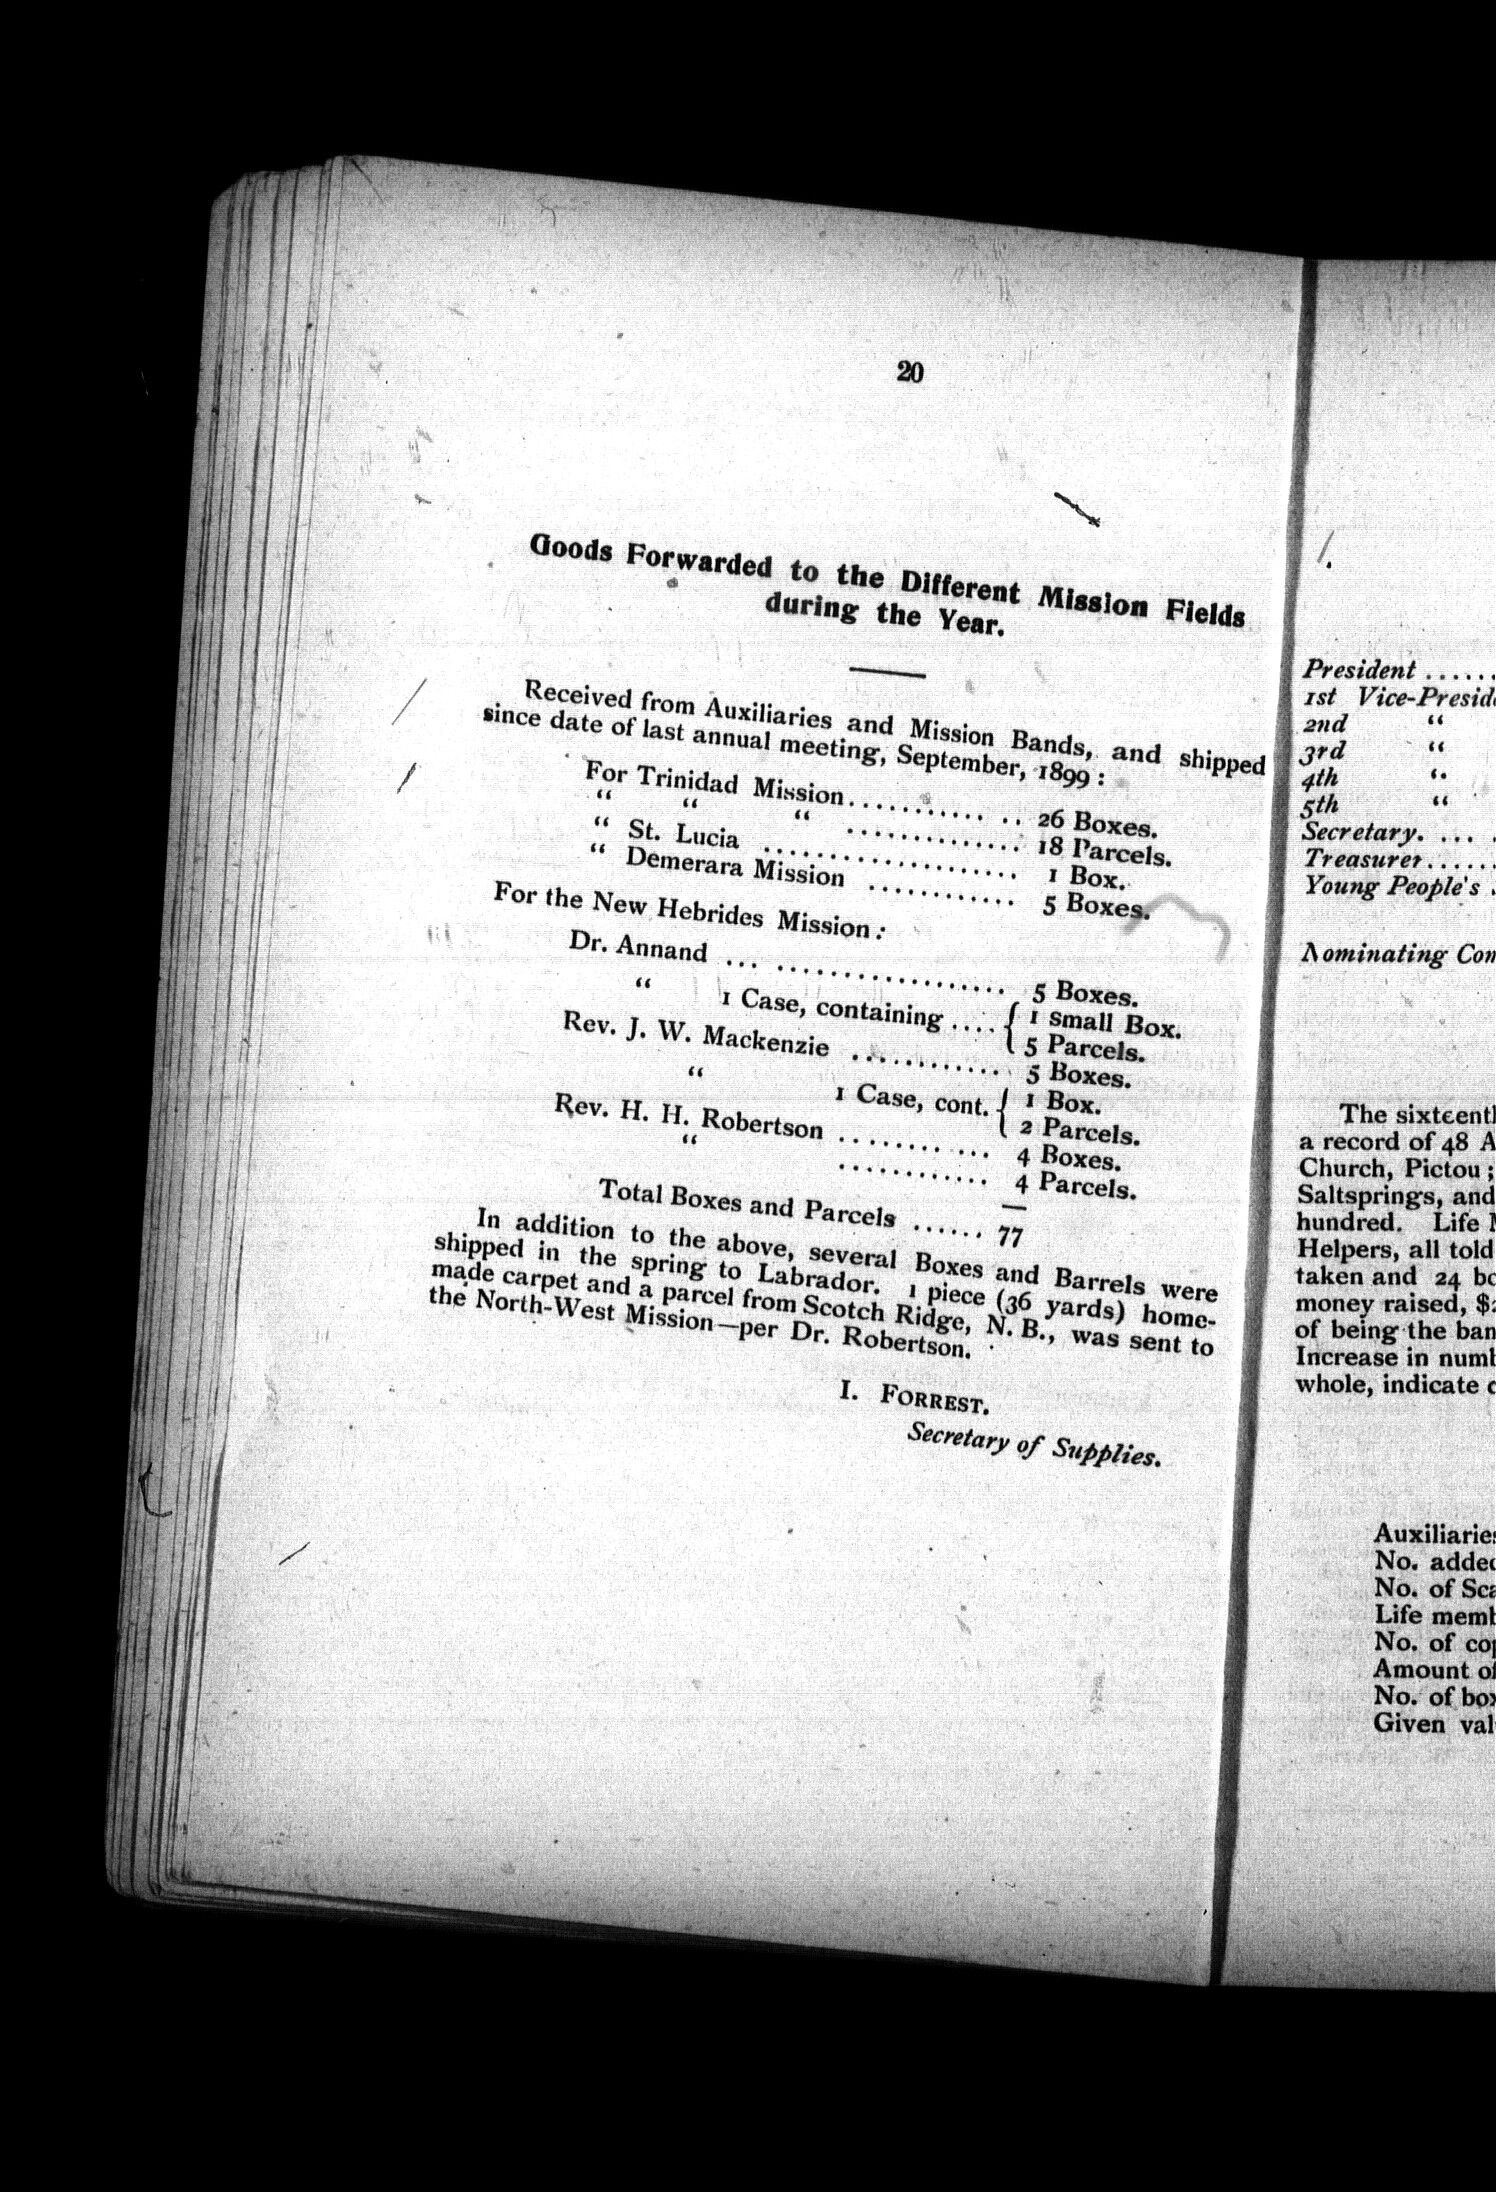 20
Goods Forwarded to the Different Mission Fields
during the Year.
Received from Auxiliaries and Mission Bands, and shipped
since date of last annual meeting, September, 1899 :
For Trinidad Mission.......... .. 26 Boxes.
“ “ “ ............. 18 Parcels.
“ St. Lucia .................... 1 Box.
“ Demerara Mission ............ 5 Boxes.
For the New Hebrides Mission :
Dr. Annand ... .................. 5 Boxes.
“ 1 Case, containing .... { 1 small Box.
5 Parcels.
Rev. J. W. Mackenzie ............ 5 Boxes.
“ 1 Case, cont. { 1 Box.
2 Parcels.
Rev. H. H. Robertson ......... ... 4 Boxes.
“ ............ 4 Parcels.
Total Boxes and Parcels ...... 77
In addition to the above, several Boxes and Barrels were
shipped in the spring to Labrador. 1 piece (36 yards) home-
made carpet and a parcel from Scotch Ridge, N. B., was sent to
the North-West Mission—per Dr. Robertson.
I. FORREST.
Secretary of Supplies.
President ......
1st Vice-Presid
2nd “
3rd “
4th “
5th “
Secretary. ... .
Treasurer......
Young People's .
Nominating Com
The sixteenth
a record of 48 A
Church, Pictou ;
Saltsprings, and
hundred. Life M
Helpers, all told
taken and 24 bo
money raised, $2
of being the ban
Increase in numb
whole, indicate
Auxiliaries
No. added
No. of Sca
Life memb
No. of cop
Amount of
No. of box
Given val